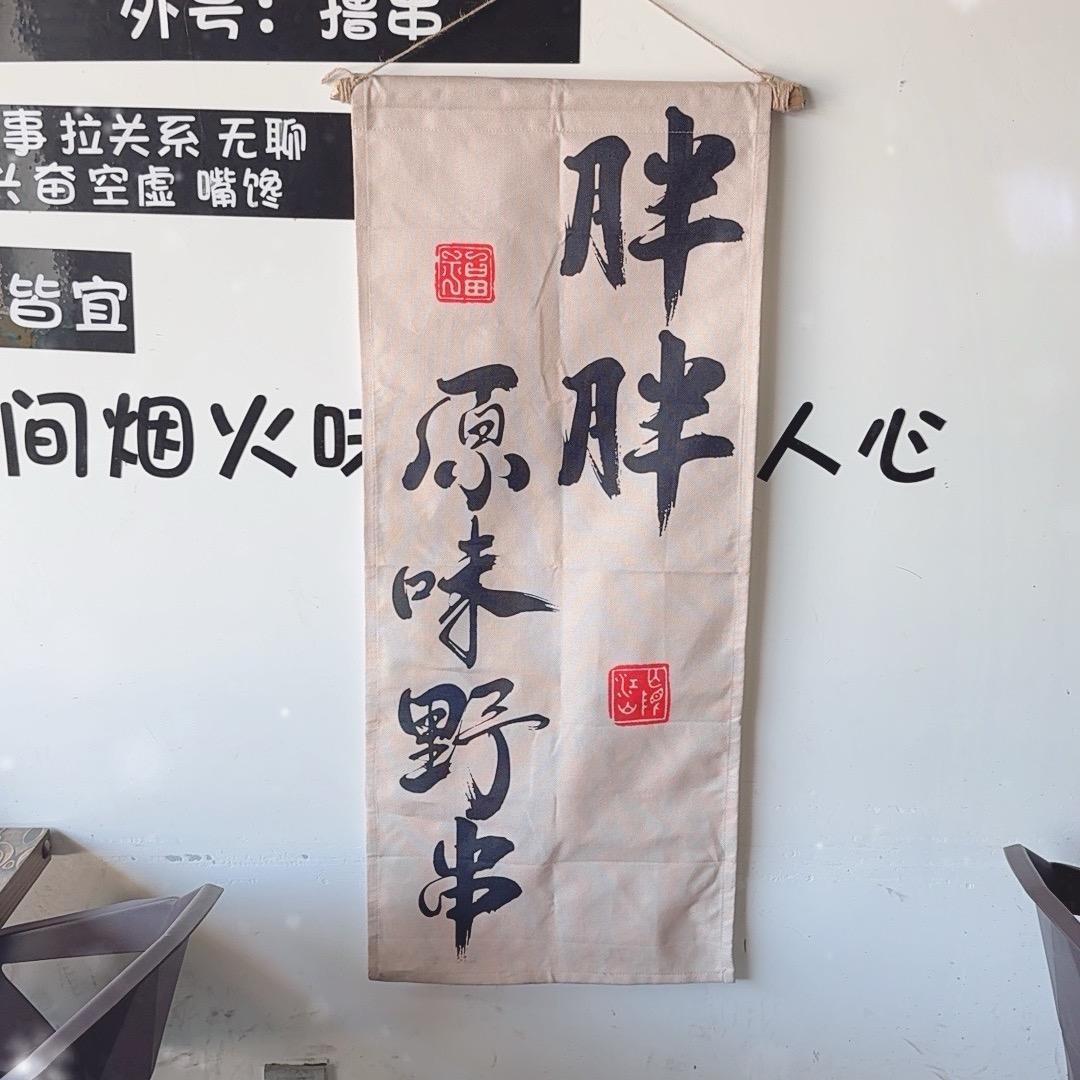 外号：撸串
事 拉关系 无聊
兴奋 空虚 嘴馋
皆宜
间烟火味
人心
胖胖
福
原味野串